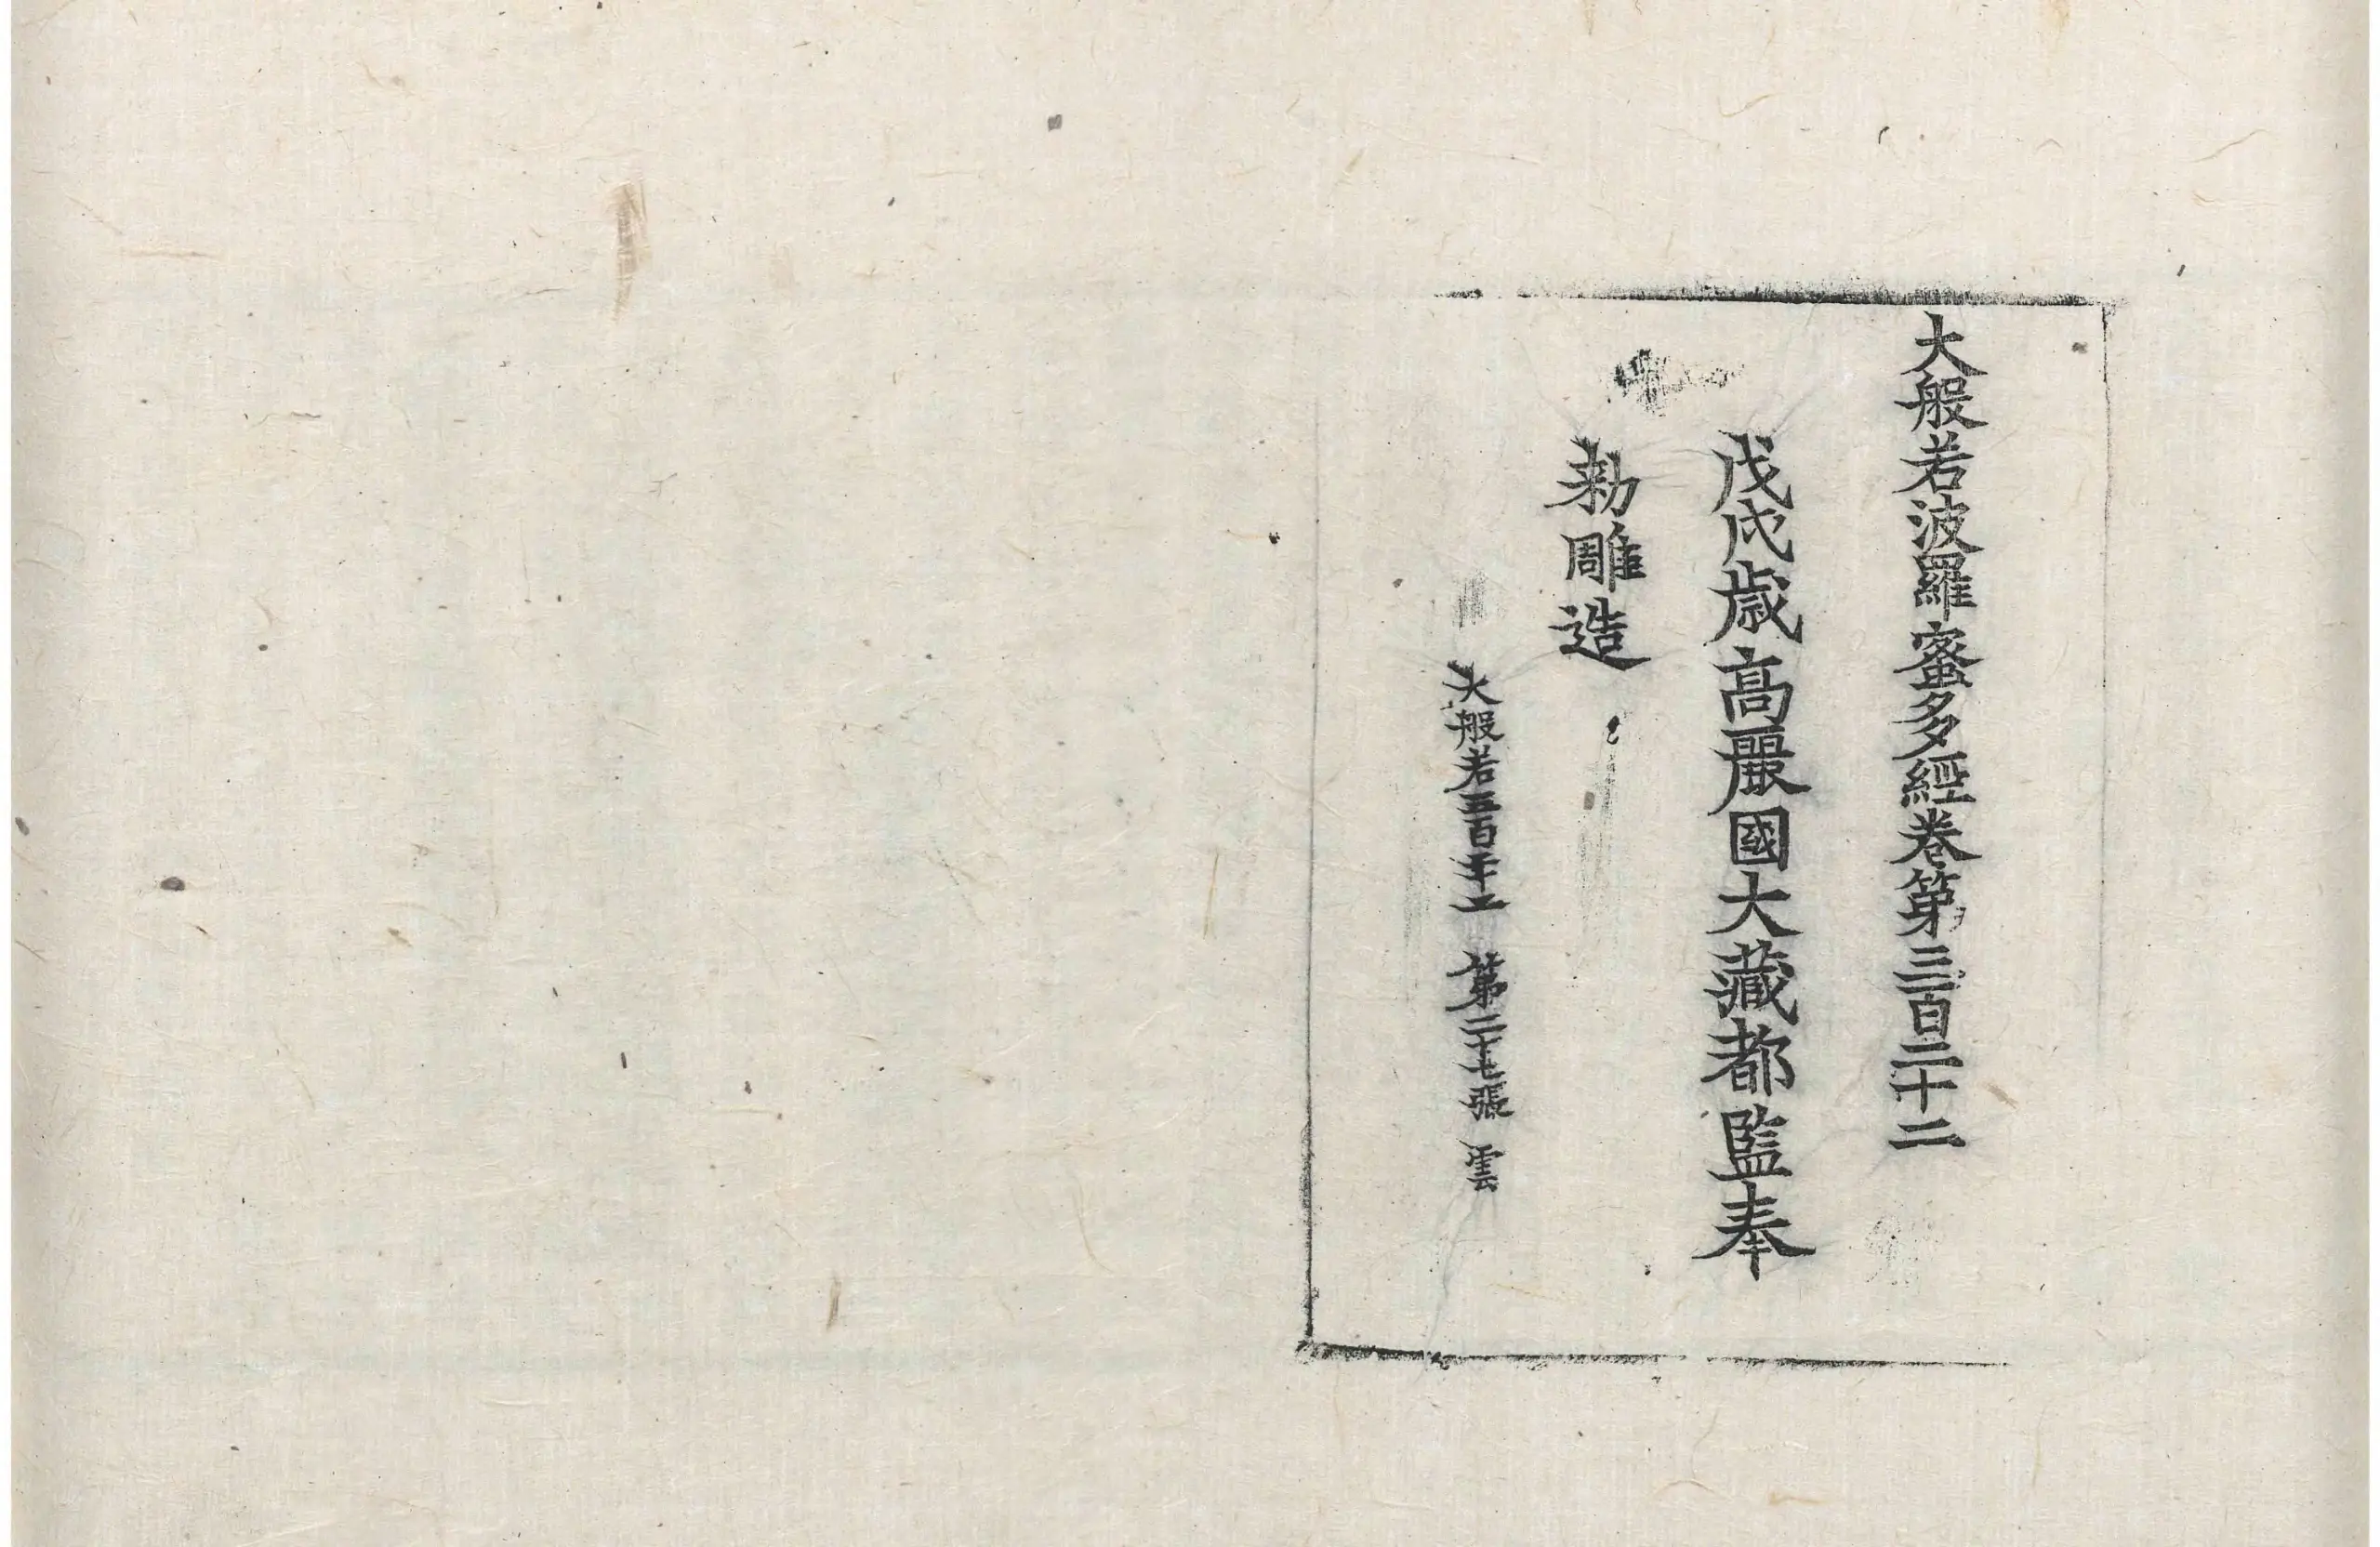 大般若波羅蜜多經卷第三百二十二
戊戌歲高麗國大藏都監奉
勑雕造
大般若三百二十二 第二十七張 雲